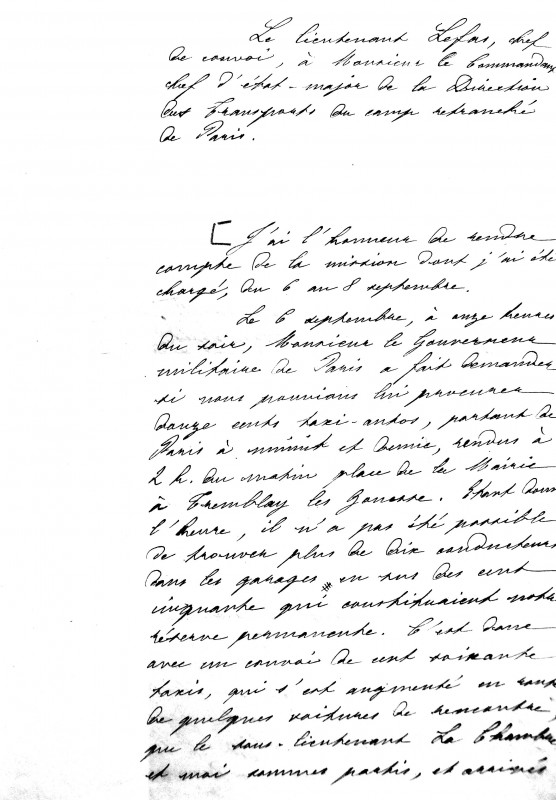 Le lieutenant Lefas, chef
de convoi, à Monsieur le Commandant
chef d'état-major de la Direction
des Transports du camp retranché
de Paris.
[ J'ai l'honneur de rendre
compte de la mission dont j'ai été
chargé, du 6 au 8 septembre.
Le 6 septembre, à onze heures
du soir, Monsieur le Gouverneur
militaire de Paris a fait demander
si nous pouvions lui procurer
douze cents taxi-autos, partant de
Paris à minuit et demie, rendus à
2 h. du matin place de la Mairie
à Tremblay les Gonesse. Etant donné
l'heure, il n'a pas été possible
de trouver plus de dix conducteurs
dans les garages en sus des cent
cinquante qui constituaient notre
réserve permanente. C'est donc
avec un convoi de cent soixante
taxis, qui s'est augmenté en route
de quelques voitures de rencontre,
que le sous-lieutenant La Chambre
et moi sommes partis, et arrivés